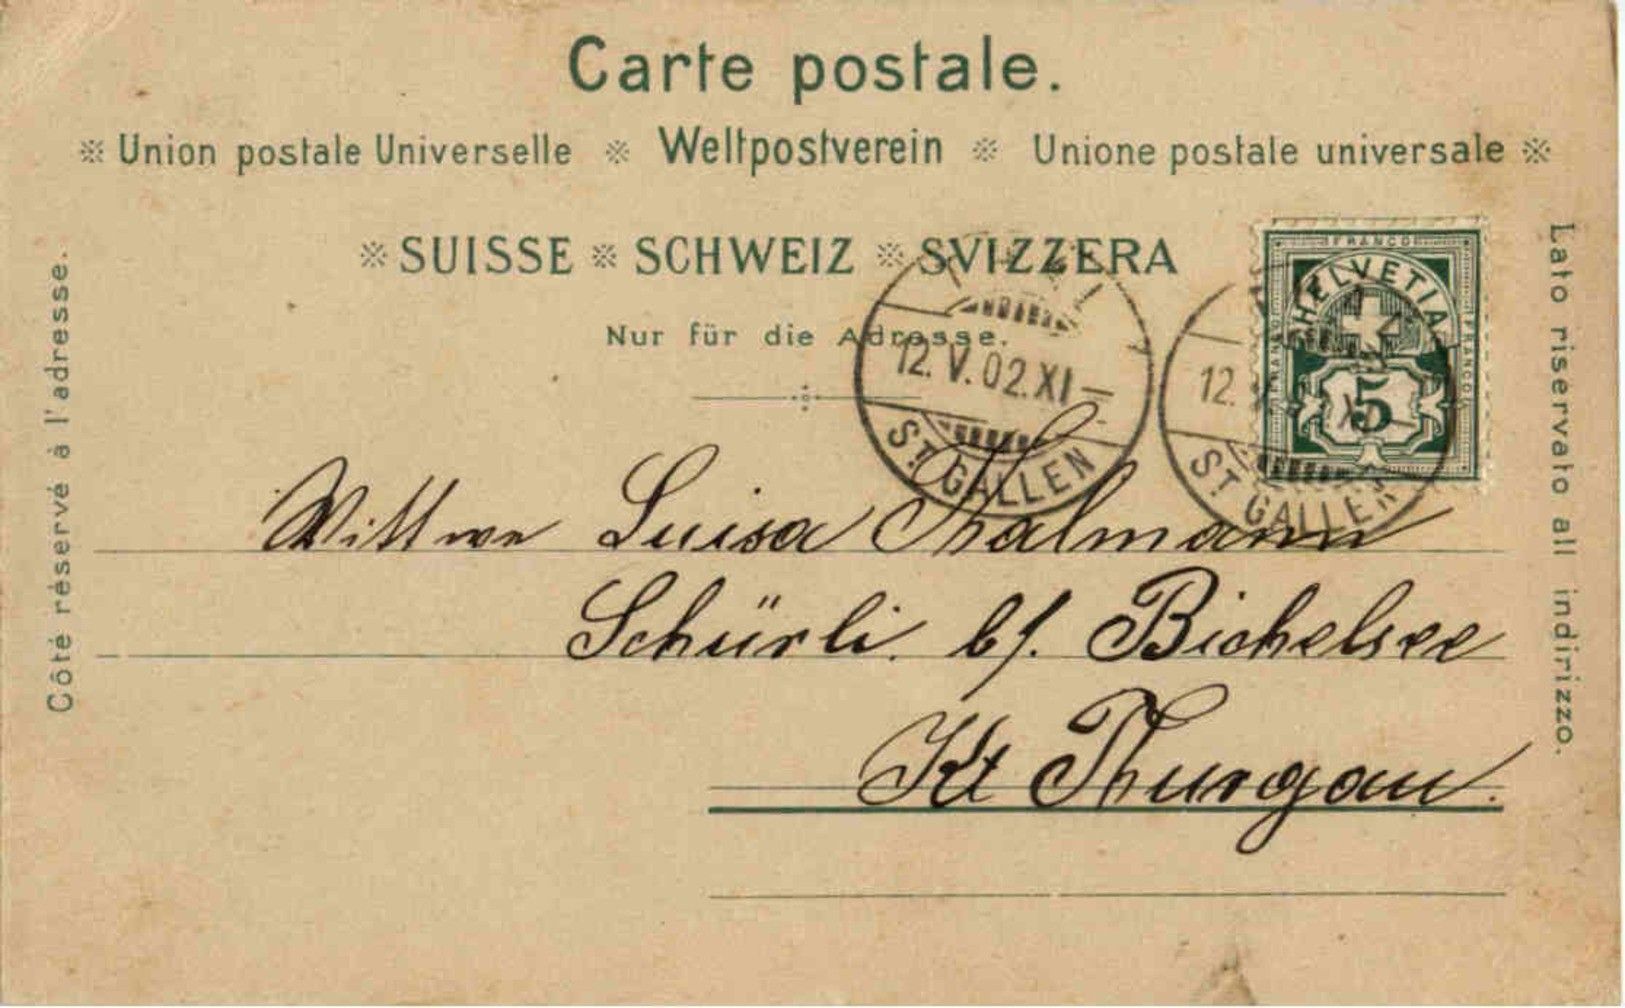 Carte postale.
※ Union postale Universelle ※ Weltpostverein ※ Unione postale universale ※
※ SUISSE ※ SCHWEIZ ※ SVIZZERA
Nur für die Adresse.
Côté réservé à l'adresse.
Lato riservato all indirizzo.
FRANCO
FRANCO
FRANCO
HELVETIA
5
12. V. 02. XI –
ST. GALLEN
12.
ST. GALLEN
Wittwe Luisa Thalmann
Schürli. b/. Bichelsee
Kt Thurgau.